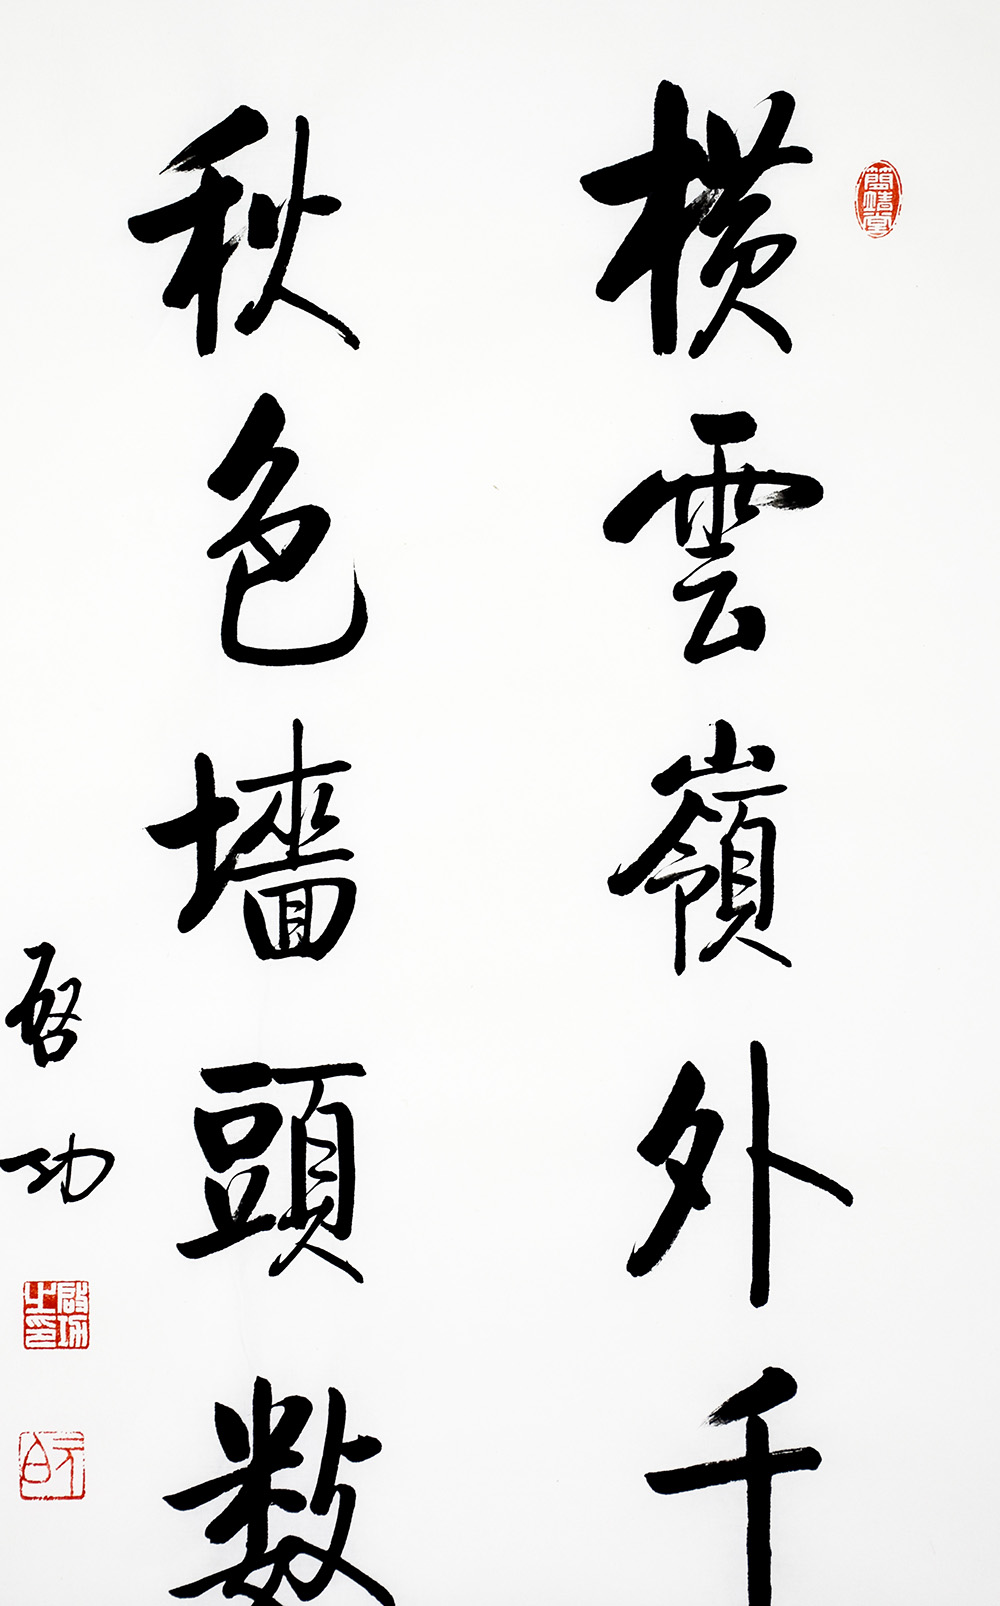 簡靖堂
橫雲嶺外千
秋色墻頭数
啓功
啟功之印
元白